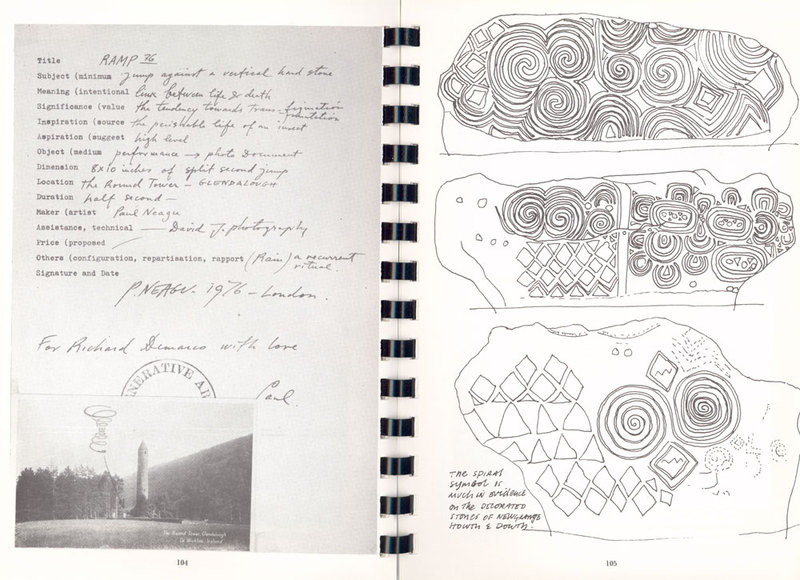 Title RAMP 76
Subject (minimum jump against a vertical hard stone
Meaning (intentional link between life & death
Significance (value the tendency towards trans-formation
mutation
Inspiration (source the perishable life of an insect
Aspiration (suggest high level
Object (medium performance → photo Document
Dimension 8x10 inches of split second jump
Location the Round Tower - GLENDALOUGH
Duration half second -
Maker (artist Paul Neagu
Assistance, technical — David J. photography
Price (proposed
Others (configuration, repartisation, rapport (Rain) a recurrent
ritual
Signature and Date
P. NEAGU. 1976 - London.
For Richard Demarco with love
NERATIVE AR
Paul.
The Round Tower, Glendalough
Co Wicklow, Ireland
104
THE SPIRAL
SYMBOL IS
MUCH IN EVIDENCE
ON THE DECORATED
STONES OF NEWGRANGE
HOWTH & DOWTH.
105